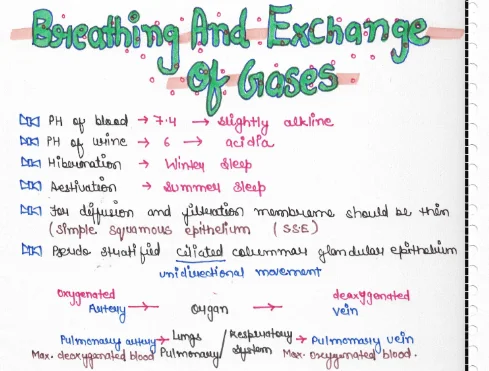 Breathing And Exchange
Of Gases
PH of blood → 7.4 → slightly alkline
PH of urine → 6 → acidia
Hibernation → Winter sleep
Aestivation → Summer sleep
For diffusion and filteration membrane should be thin
(Simple squamous epithelium (SSE)
Pseudo stratified ciliated columnar glandular epithelium
unidirectional movement
Oxygenated Artery → Organ → deoxygenated vein
Pulmonary artery → Lungs / Respiratory → Pulmonary vein
Max. deoxyganated blood Pulmonary / System Max. Oxygenated blood.